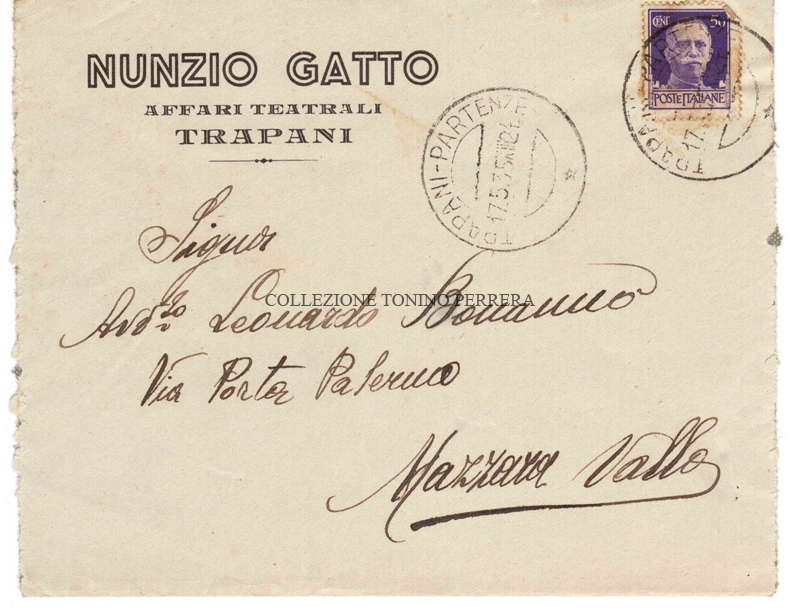 NUNZIO GATTO
AFFARI TEATRALI
TRAPANI
CENT 50
POSTE ITALIANE
TRAPANI-PARTENZE
17.5.35.XIII 21
TRAPANI PARTENZE
17.
Signor
Avv.to Leonardo Bonanno
COLLEZIONE TONINO PERRERA
Via Porta Palermo
Mazzara Vallo